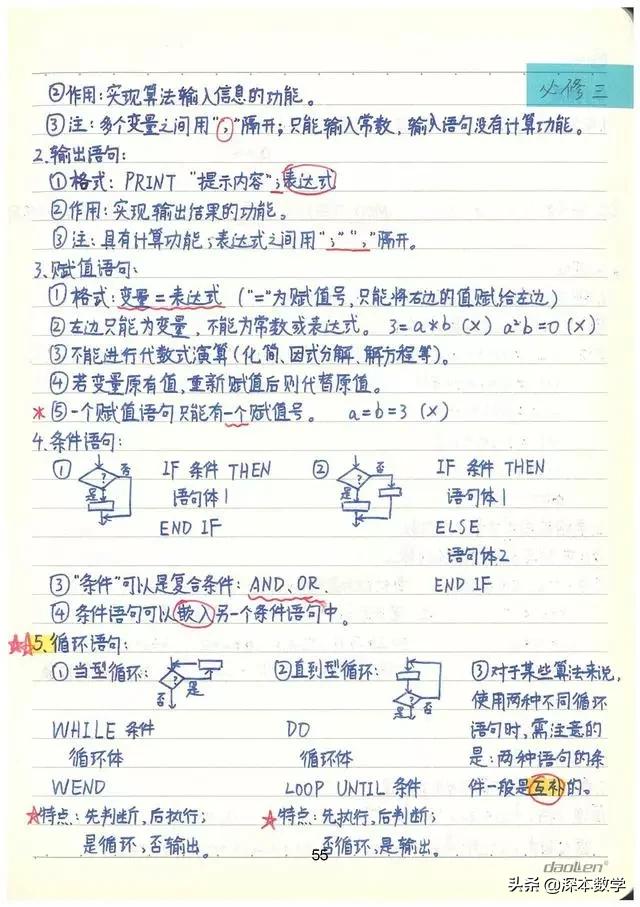 必修三
②作用:实现算法输入信息的功能。
③注:多个变量之间用","隔开;只能输入常数,输入语句没有计算功能。
2.输出语句:
①格式: PRINT "提示内容";表达式
②作用:实现输出结果的功能。
③注:具有计算功能;表达式之间用";"","隔开。
3.赋值语句:
①格式:变量=表达式 ("="为赋值号,只能将右边的值赋给左边)
②左边只能为变量,不能为常数或表达式。 3=a*b (×) a²b=0 (×)
③不能进行代数式演算(化简、因式分解、解方程等)。
④若变量原有值,重新赋值后则代替原值。
*⑤一个赋值语句只能有一个赋值号。 a=b=3 (×)
4.条件语句:
① ? 否 是 IF 条件 THEN ② ? 否 是 IF 条件 THEN
语句体1 语句体1
END IF ELSE
语句体2
③"条件"可以是复合条件: AND、OR. END IF
④条件语句可以嵌入另一个条件语句中。
☆☆5.循环语句:
①当型循环: ? 是 否 ②直到型循环: ? 否 是 ③对于某些算法来说,
使用两种不同循环
WHILE 条件 DO 语句时,需注意的
循环体 循环体 是:两种语句的条
WEND LOOP UNTIL 条件 件一般是互补的。
☆特点:先判断,后执行; ☆特点:先执行,后判断;
是循环,否输出。 否循环,是输出。
55
daoLen
头条@深本数学